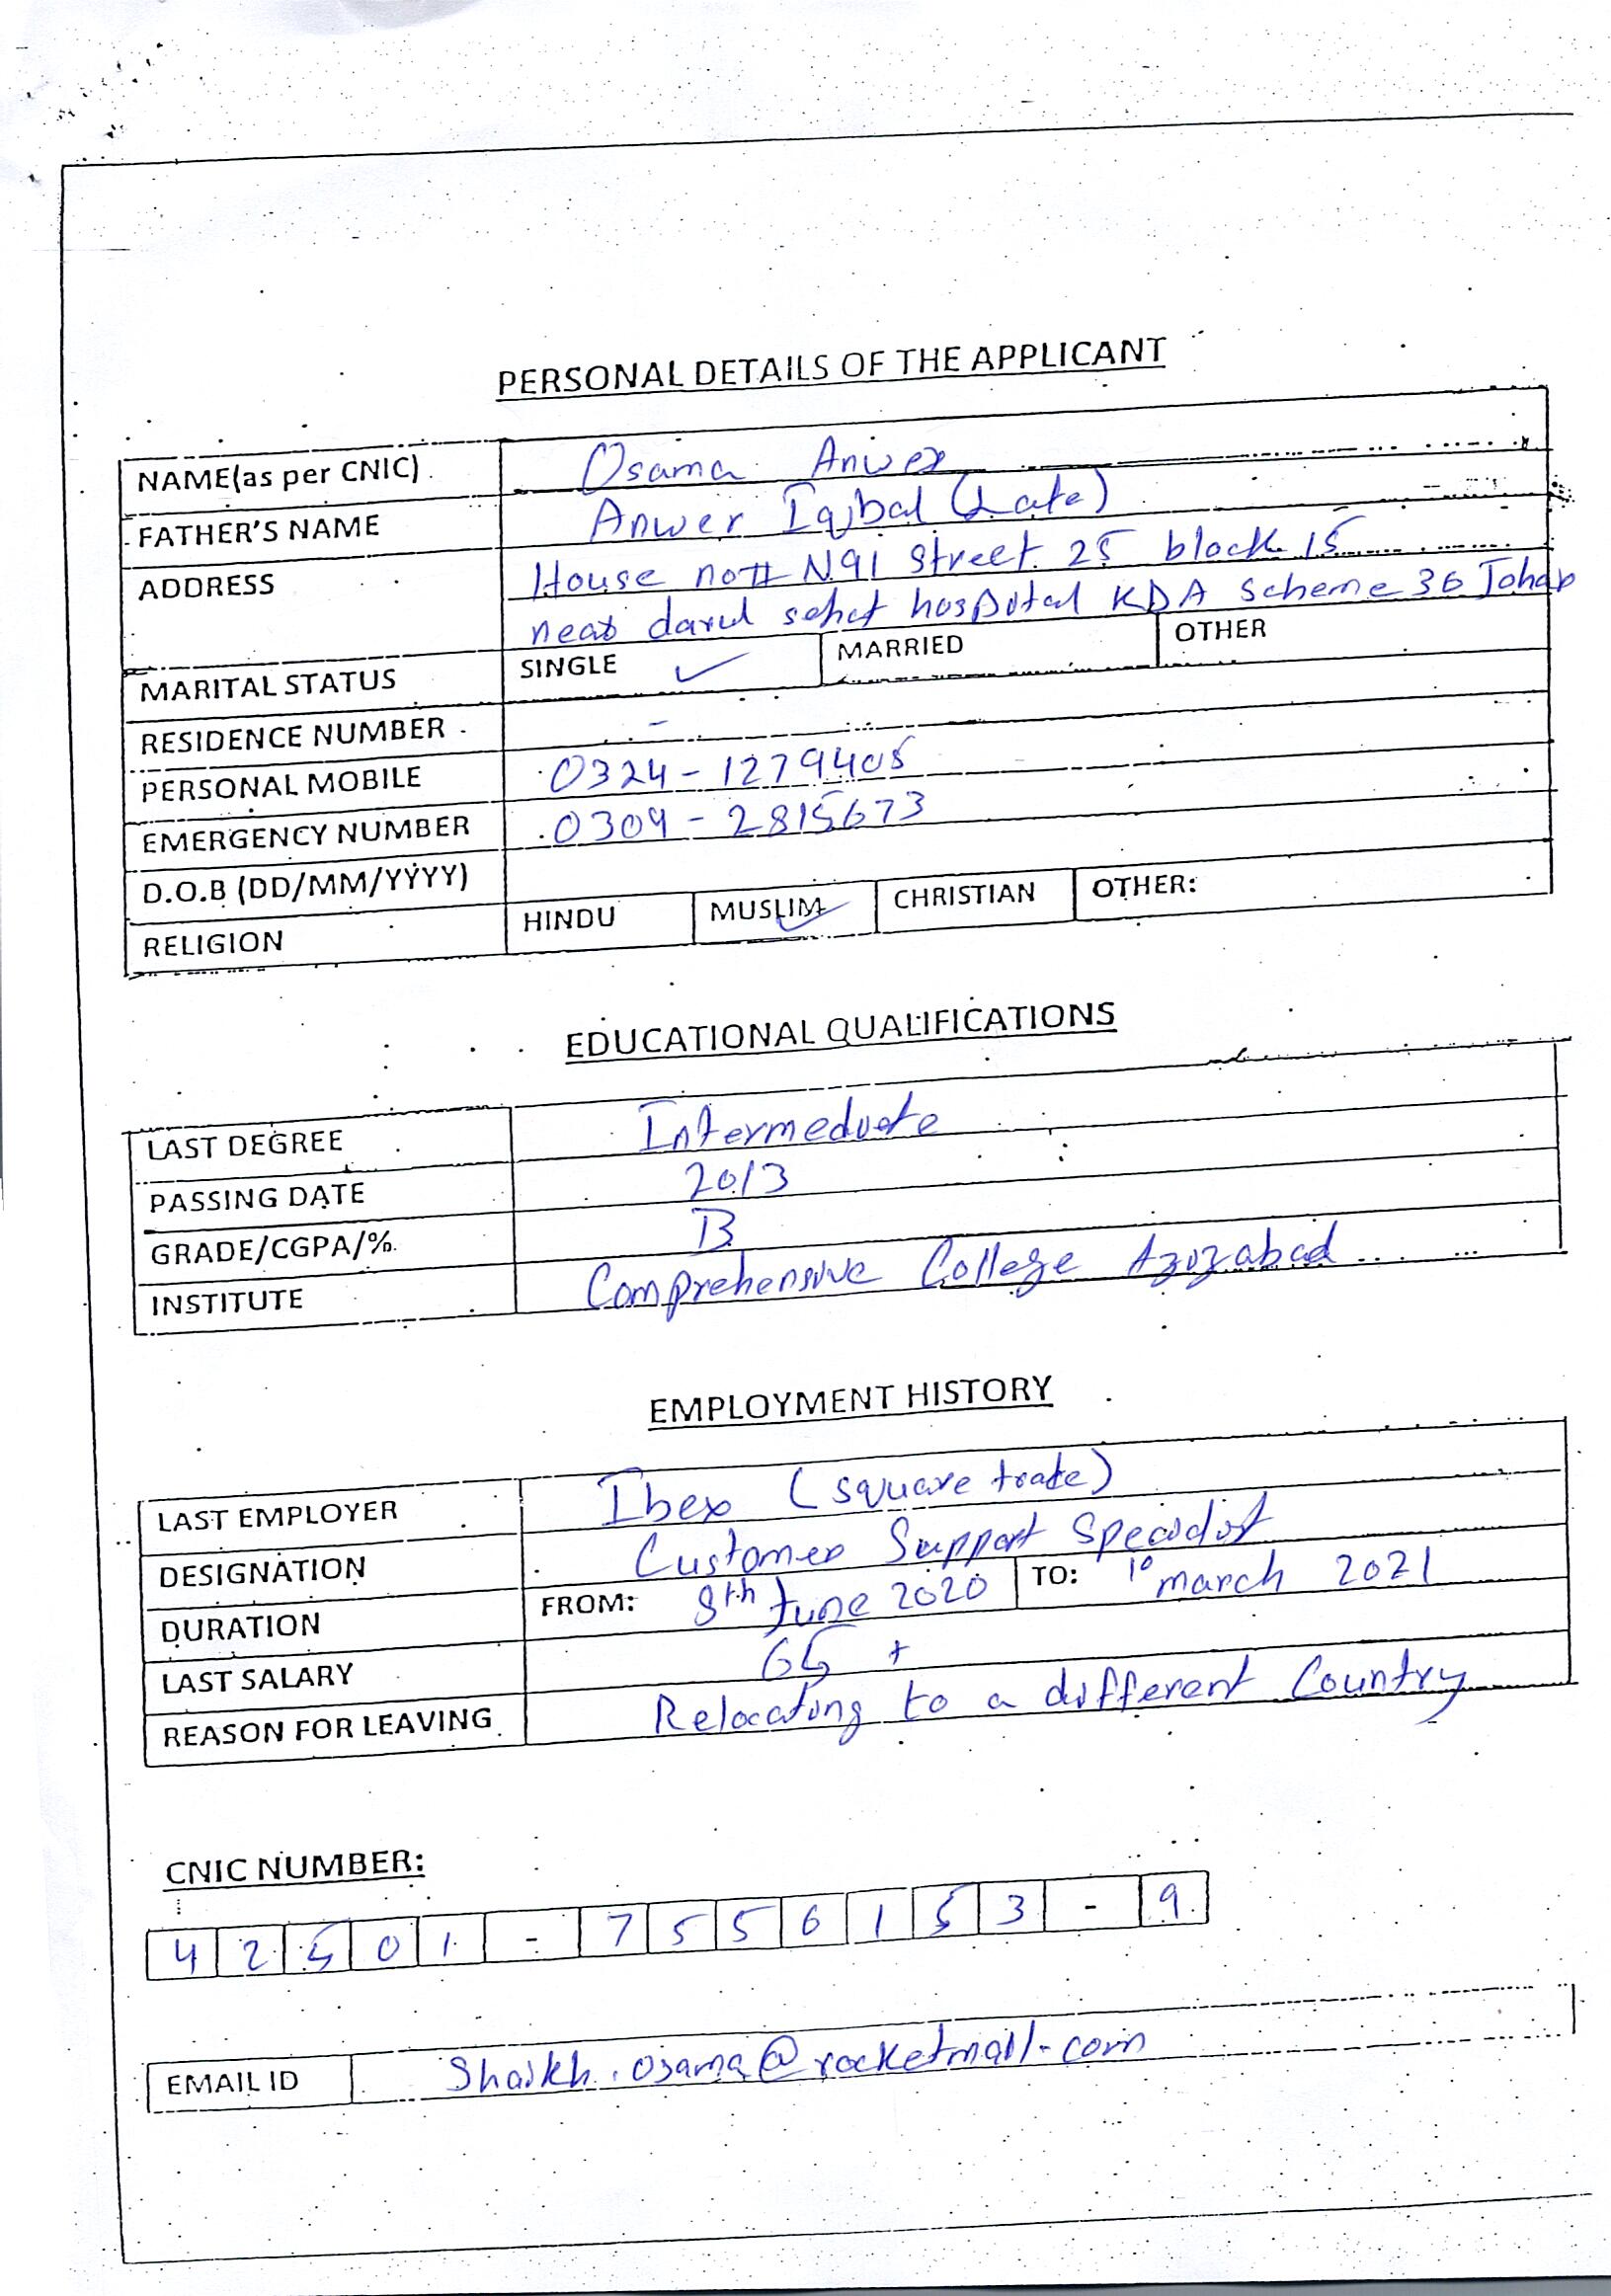 PERSONAL DETAILS OF THE APPLICANT
NAME(as per CNIC) Osama Anwer
FATHER'S NAME Anwer Iqbal (Late)
ADDRESS House no# N91 Street 25 block 15
near darul sehat hospital KDA Scheme 36 Johar
MARITAL STATUS SINGLE ✓ MARRIED OTHER
RESIDENCE NUMBER -
PERSONAL MOBILE 0324-1279405
EMERGENCY NUMBER 0309-2815673
D.O.B (DD/MM/YYYY)
RELIGION HINDU MUSLIM ✓ CHRISTIAN OTHER:
EDUCATIONAL QUALIFICATIONS
LAST DEGREE Intermediate
PASSING DATE 2013
GRADE/CGPA/% B
INSTITUTE Comprehensive College Azizabad
EMPLOYMENT HISTORY
LAST EMPLOYER Ibex (square trade)
DESIGNATION Customer Support Specialist
DURATION FROM: 8th June 2020 TO: 10 march 2021
LAST SALARY 65 +
REASON FOR LEAVING Relocating to a different Country
CNIC NUMBER:
42501-7556153-9
EMAIL ID Shaikh.osama@rocketmail.com